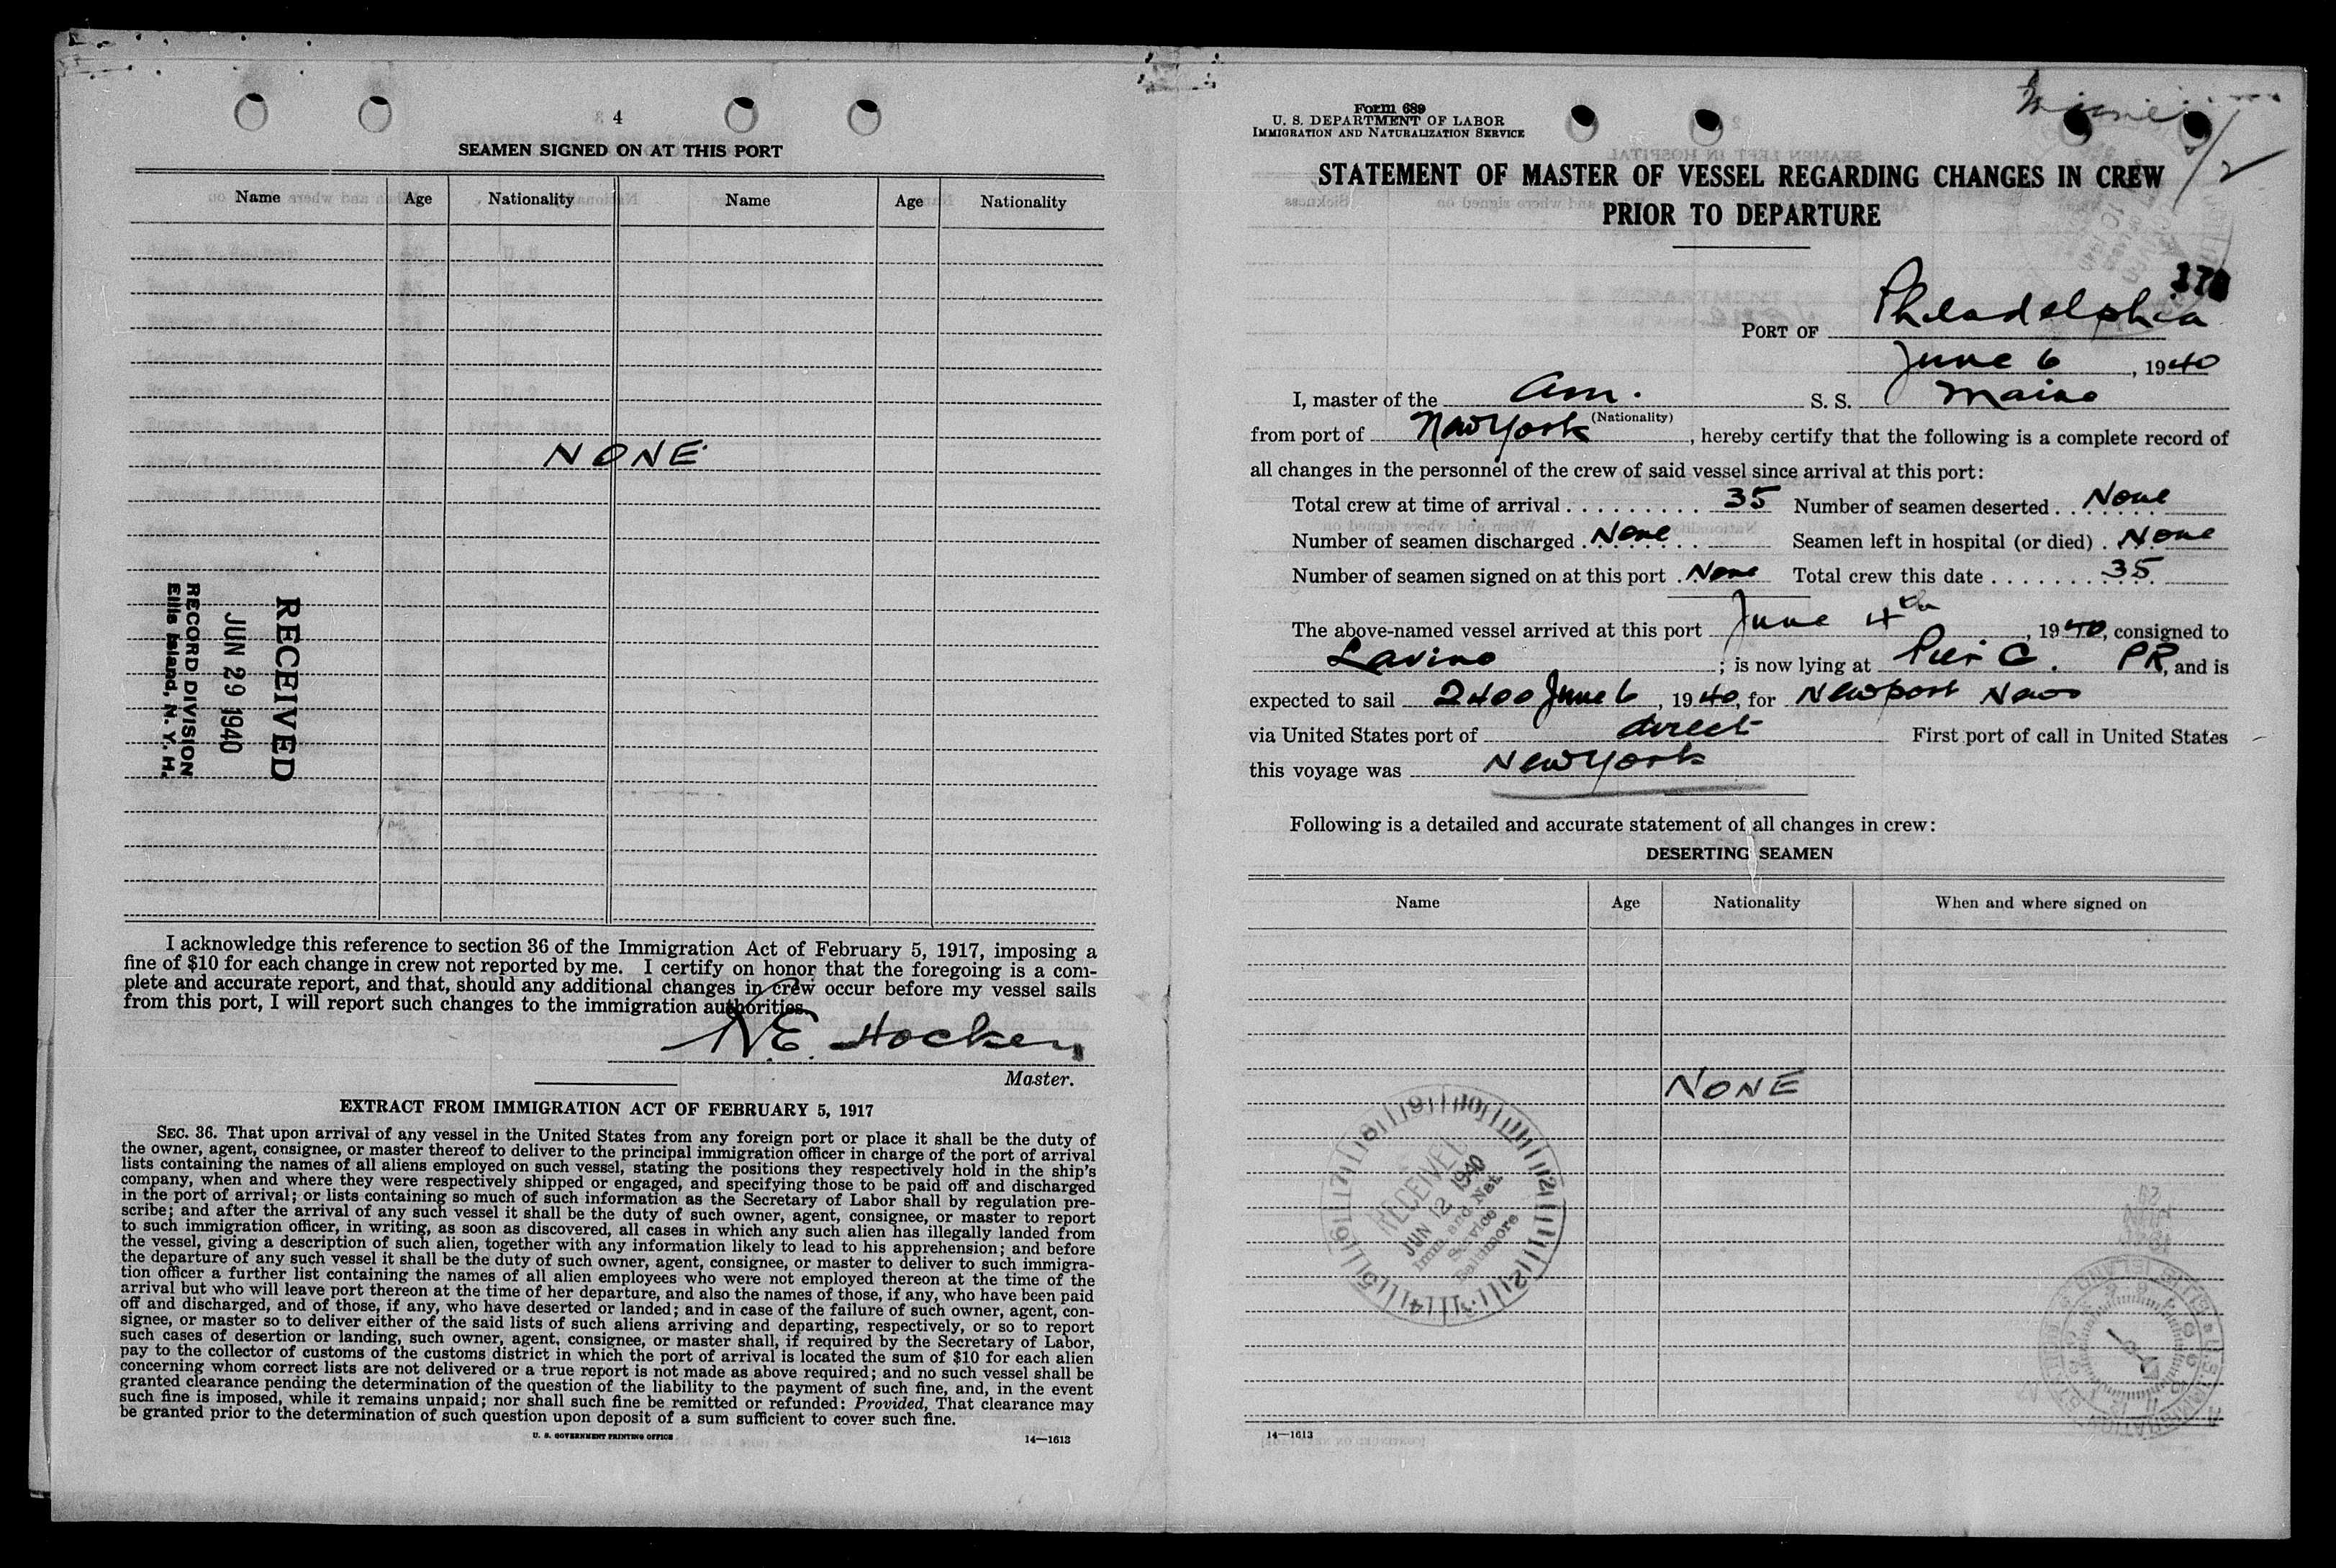 4
SEAMEN SIGNED ON AT THIS PORT
Name Age Nationality Name Age Nationality
NONE
RECEIVED
JUN 29 1940
RECORD DIVISION
Ellis Island, N. Y. H.
I acknowledge this reference to section 36 of the Immigration Act of February 5, 1917, imposing a
fine of $10 for each change in crew not reported by me. I certify on honor that the foregoing is a com-
plete and accurate report, and that, should any additional changes in crew occur before my vessel sails
from this port, I will report such changes to the immigration authorities.
N.E. Hocken
Master.
EXTRACT FROM IMMIGRATION ACT OF FEBRUARY 5, 1917
SEC. 36. That upon arrival of any vessel in the United States from any foreign port or place it shall be the duty of
the owner, agent, consignee, or master thereof to deliver to the principal immigration officer in charge of the port of arrival
lists containing the names of all aliens employed on such vessel, stating the positions they respectively hold in the ship's
company, when and where they were respectively shipped or engaged, and specifying those to be paid off and discharged
in the port of arrival; or lists containing so much of such information as the Secretary of Labor shall by regulation pre-
scribe; and after the arrival of any such vessel it shall be the duty of such owner, agent, consignee, or master to report
to such immigration officer, in writing, as soon as discovered, all cases in which any such alien has illegally landed from
the vessel, giving a description of such alien, together with any information likely to lead to his apprehension; and before
the departure of any such vessel it shall be the duty of such owner, agent, consignee, or master to deliver to such immigra-
tion officer a further list containing the names of all alien employees who were not employed thereon at the time of the
arrival but who will leave port thereon at the time of her departure, and also the names of those, if any, who have been paid
off and discharged, and of those, if any, who have deserted or landed; and in case of the failure of such owner, agent, con-
signee, or master so to deliver either of the said lists of such aliens arriving and departing, respectively, or so to report
such cases of desertion or landing, such owner, agent, consignee, or master shall, if required by the Secretary of Labor,
pay to the collector of customs of the customs district in which the port of arrival is located the sum of $10 for each alien
concerning whom correct lists are not delivered or a true report is not made as above required; and no such vessel shall be
granted clearance pending the determination of the question of the liability to the payment of such fine, and, in the event
such fine is imposed, while it remains unpaid; nor shall such fine be remitted or refunded: Provided, That clearance may
be granted prior to the determination of such question upon deposit of a sum sufficient to cover such fine.
U. S. GOVERNMENT PRINTING OFFICE 14—1613
Form 689
U. S. DEPARTMENT OF LABOR
IMMIGRATION AND NATURALIZATION SERVICE
STATEMENT OF MASTER OF VESSEL REGARDING CHANGES IN CREW
PRIOR TO DEPARTURE
PORT OF Philadelphia
June 6, 1940
I, master of the Am. S. S. Maine
(Nationality)
from port of New York, hereby certify that the following is a complete record of
all changes in the personnel of the crew of said vessel since arrival at this port:
Total crew at time of arrival 35 Number of seamen deserted None
Number of seamen discharged None Seamen left in hospital (or died) None
Number of seamen signed on at this port None Total crew this date 35
The above-named vessel arrived at this port June 4th, 1940, consigned to
Lavino; is now lying at Pier G. PR, and is
expected to sail 2400 June 6, 1940, for Newport News
via United States port of direct First port of call in United States
this voyage was New York
Following is a detailed and accurate statement of all changes in crew:
DESERTING SEAMEN
Name Age Nationality When and where signed on
NONE
RECEIVED
JUN 12 1940
Imm. and Nat.
Service
Baltimore
14—1613